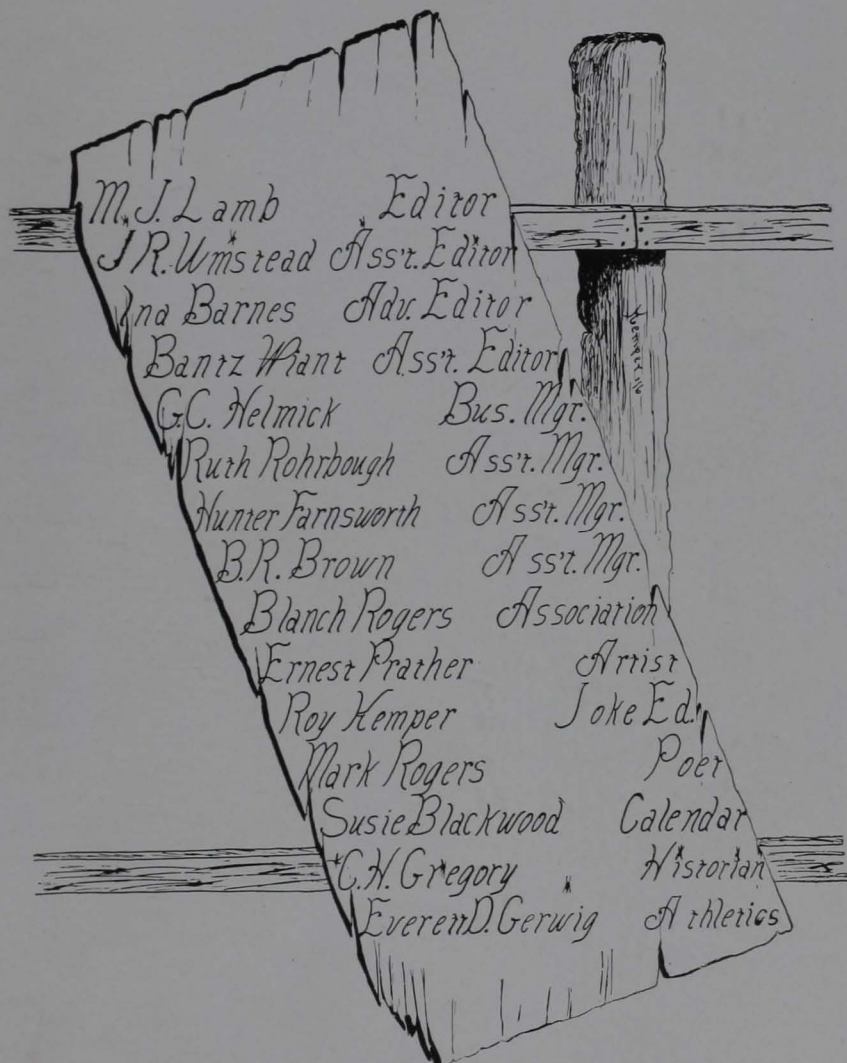 M.J. Lamb Editor
J.R. Umstead Ass't. Editor
Ina Barnes Adv. Editor
Bantz Wiant Ass't. Editor
G.C. Helmick Bus. Mgr.
Ruth Rohrbough Ass't. Mgr.
Hunter Farnsworth Ass't. Mgr.
B.R. Brown Ass't. Mgr.
Blanch Rogers Association
Ernest Prather Artist
Roy Kemper Joke Ed.
Mark Rogers Poet
Susie Blackwood Calendar
C.H. Gregory Historian
Everett D. Gerwig Athletics